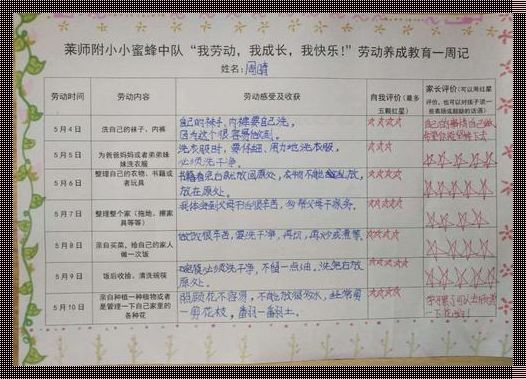 莱师附小小蜜蜂中队“我劳动，我成长，我快乐！”劳动养成教育一周记
姓名：周晴
劳动时间 劳动内容 劳动感受及收获 自我评价（最多五颗红星） 家长评价（可以用红星评价，也可以对孩子说一些表扬或鼓励的话语）
5月4日 洗自己的袜子、内裤 自己的袜子、内裤要自己洗。
因为这个很容易做到。
自己的事情自己做，
5月5日 为爸爸妈妈或者弟弟妹妹洗衣服 洗衣服时，要仔细、用力地洗衣服，
必须洗干净。
5月6日 整理自己的衣物、书籍或者玩具 书籍看完自就放回原处，衣物不能乱放，
放在原处。
5月7日 整理整个家（拖地、擦家具等等） 我体会到父母干活很辛苦，多帮父母干家务。
5月8日 亲自买菜，给自己的家人做一次饭 做饭很辛苦，要洗干净，再切，再炒或煮等。
5月9日 饭后收拾，清洗碗筷 碗筷必须洗干净，不留一点油，洗完自放
原处。
5月10日 亲自种植一种植物或者是管理一下自己家里的各种花 照顾花不容易，不能放很多水，经常剪
一剪花枝，翻一翻土。